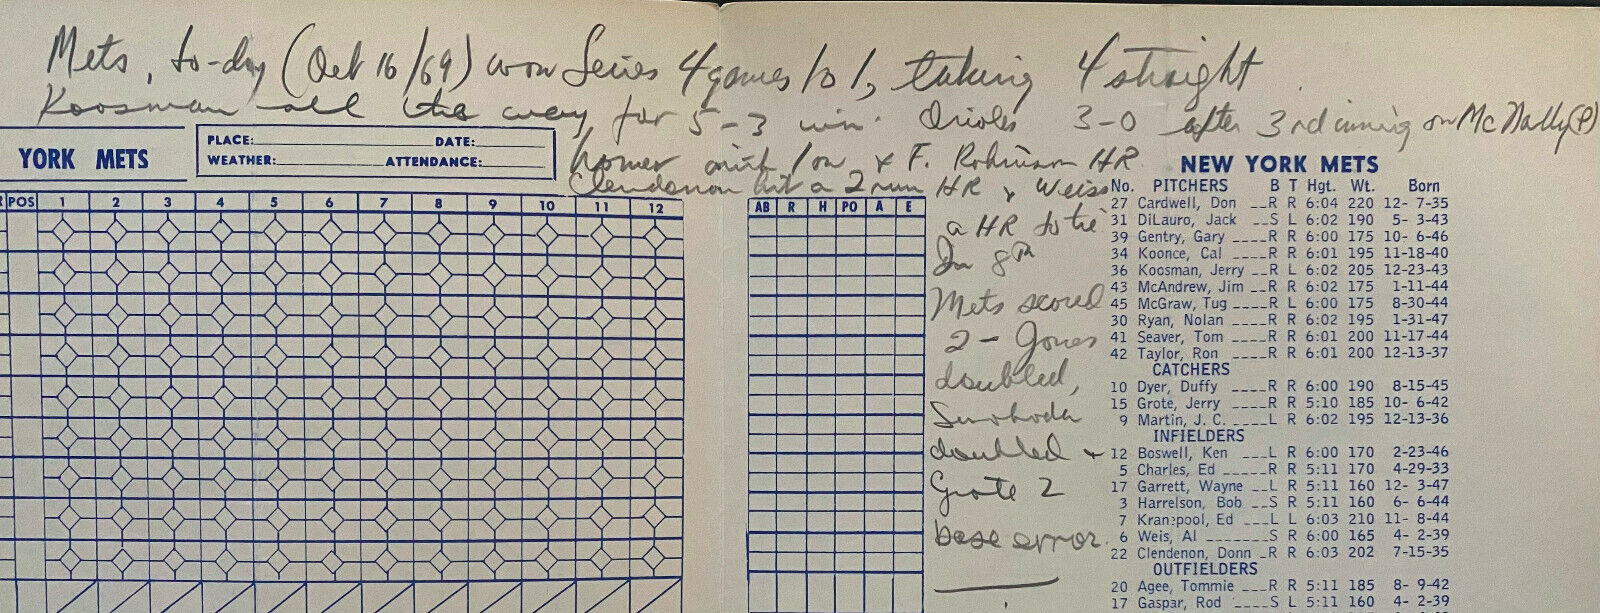 Mets, to-day (Oct 16/69) won Series 4 games to 1, taking 4 straight
Koosman all the way for 5-3 win. Orioles 3-0 after 3rd inning on McNally (P)
homer with 1 on & F. Robinson HR
Clendenon hit a 2 run HR & Weiss
a HR to tie
In 8th
Mets scored
2 - Jones
doubled,
Swoboda
doubled &
Grote 2
base error.
YORK METS
PLACE: DATE:
WEATHER: ATTENDANCE:
POS 1 2 3 4 5 6 7 8 9 10 11 12
AB R H PO A E
NEW YORK METS
No. PITCHERS B T Hgt. Wt. Born
27 Cardwell, Don __R R 6:04 220 12- 7-35
31 DiLauro, Jack __S L 6:02 190 5- 3-43
39 Gentry, Gary ____R R 6:00 175 10- 6-46
34 Koonce, Cal ____R R 6:01 195 11-18-40
36 Koosman, Jerry __R L 6:02 205 12-23-43
43 McAndrew, Jim __R R 6:02 175 1-11-44
45 McGraw, Tug ____R L 6:00 175 8-30-44
30 Ryan, Nolan ____R R 6:02 195 1-31-47
41 Seaver, Tom ____R R 6:01 200 11-17-44
42 Taylor, Ron ____R R 6:01 200 12-13-37
CATCHERS
10 Dyer, Duffy ____R R 6:00 190 8-15-45
15 Grote, Jerry ____R R 5:10 185 10- 6-42
9 Martin, J. C. ____L R 6:02 195 12-13-36
INFIELDERS
12 Boswell, Ken ___L R 6:00 170 2-23-46
5 Charles, Ed _____R R 5:11 170 4-29-33
17 Garrett, Wayne __L R 5:11 160 12- 3-47
3 Harrelson, Bob __S R 5:11 160 6- 6-44
7 Kranepool, Ed ___L L 6:03 210 11- 8-44
6 Weis, Al _______S R 6:00 165 4- 2-39
22 Clendenon, Donn _R R 6:03 202 7-15-35
OUTFIELDERS
20 Agee, Tommie ___R R 5:11 185 8- 9-42
17 Gaspar, Rod ____S L 5:11 160 4- 2-39